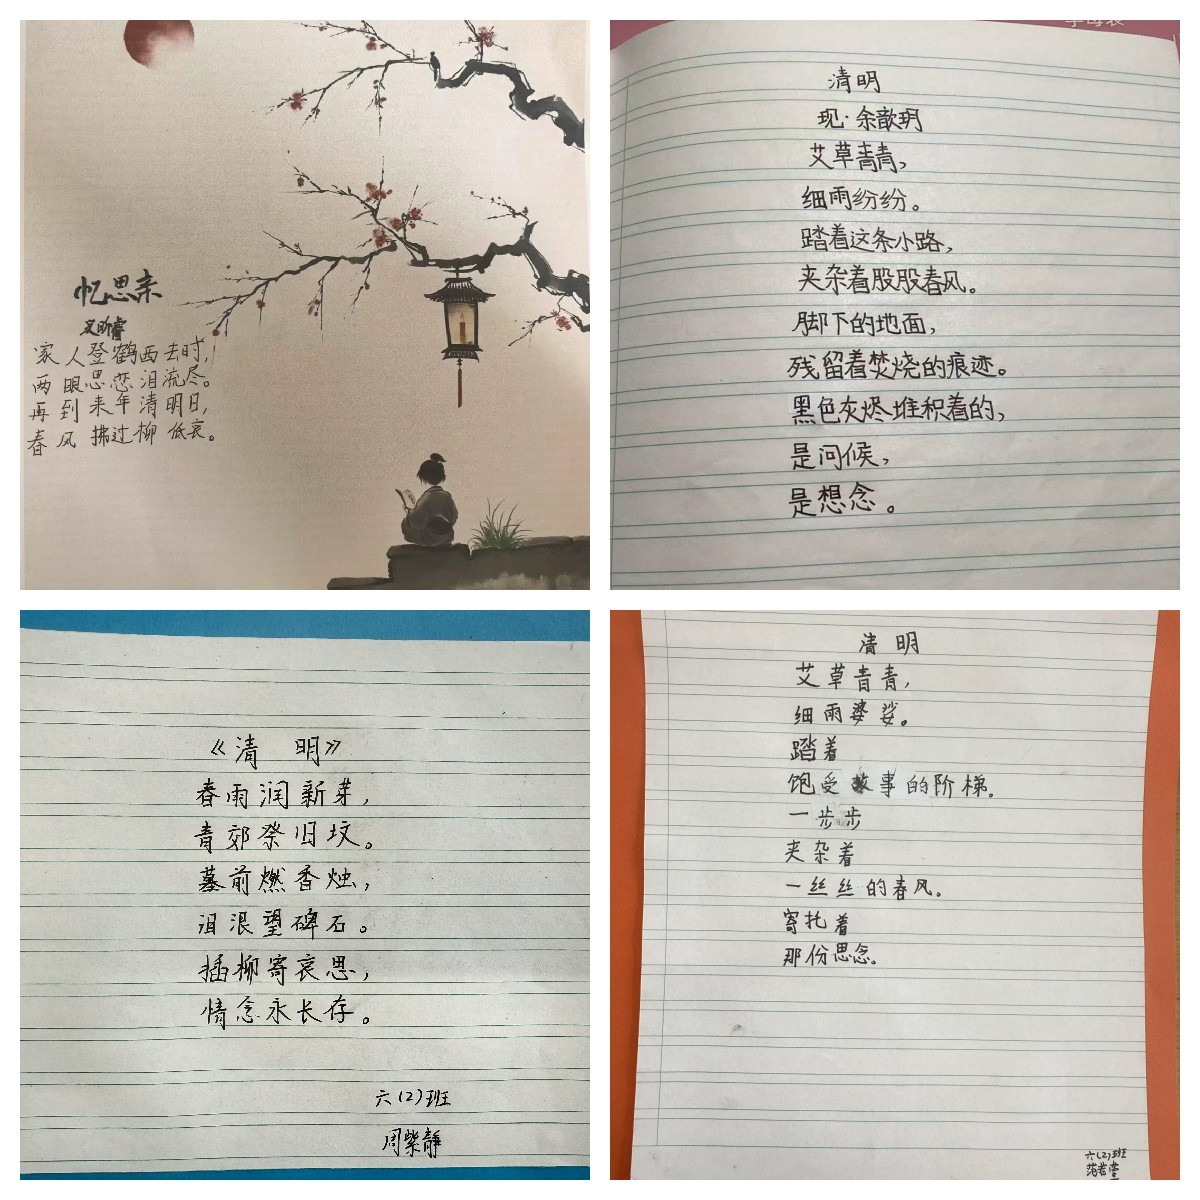 忆思亲
家人登鹤西去时，
两眼思恋泪流尽。
再到来年清明日，
春风拂过柳低哀。
清明
现·余歆玥
艾草青青，
细雨纷纷。
踏着这条小路，
夹杂着股股春风。
脚下的地面，
残留着焚烧的痕迹。
黑色灰烬堆积着的，
是问候，
是想念。
《清 明》
春雨润新芽，
青郊祭旧坟。
墓前燃香烛，
泪浪望碑石。
插柳寄哀思，
情念永长存。
六（2）班
周紫静
清 明
艾草青青，
细雨婆娑。
踏着
饱受故事的阶梯。
一步步
夹杂着
一丝丝的春风。
寄托着
那份思念。
六（2）班